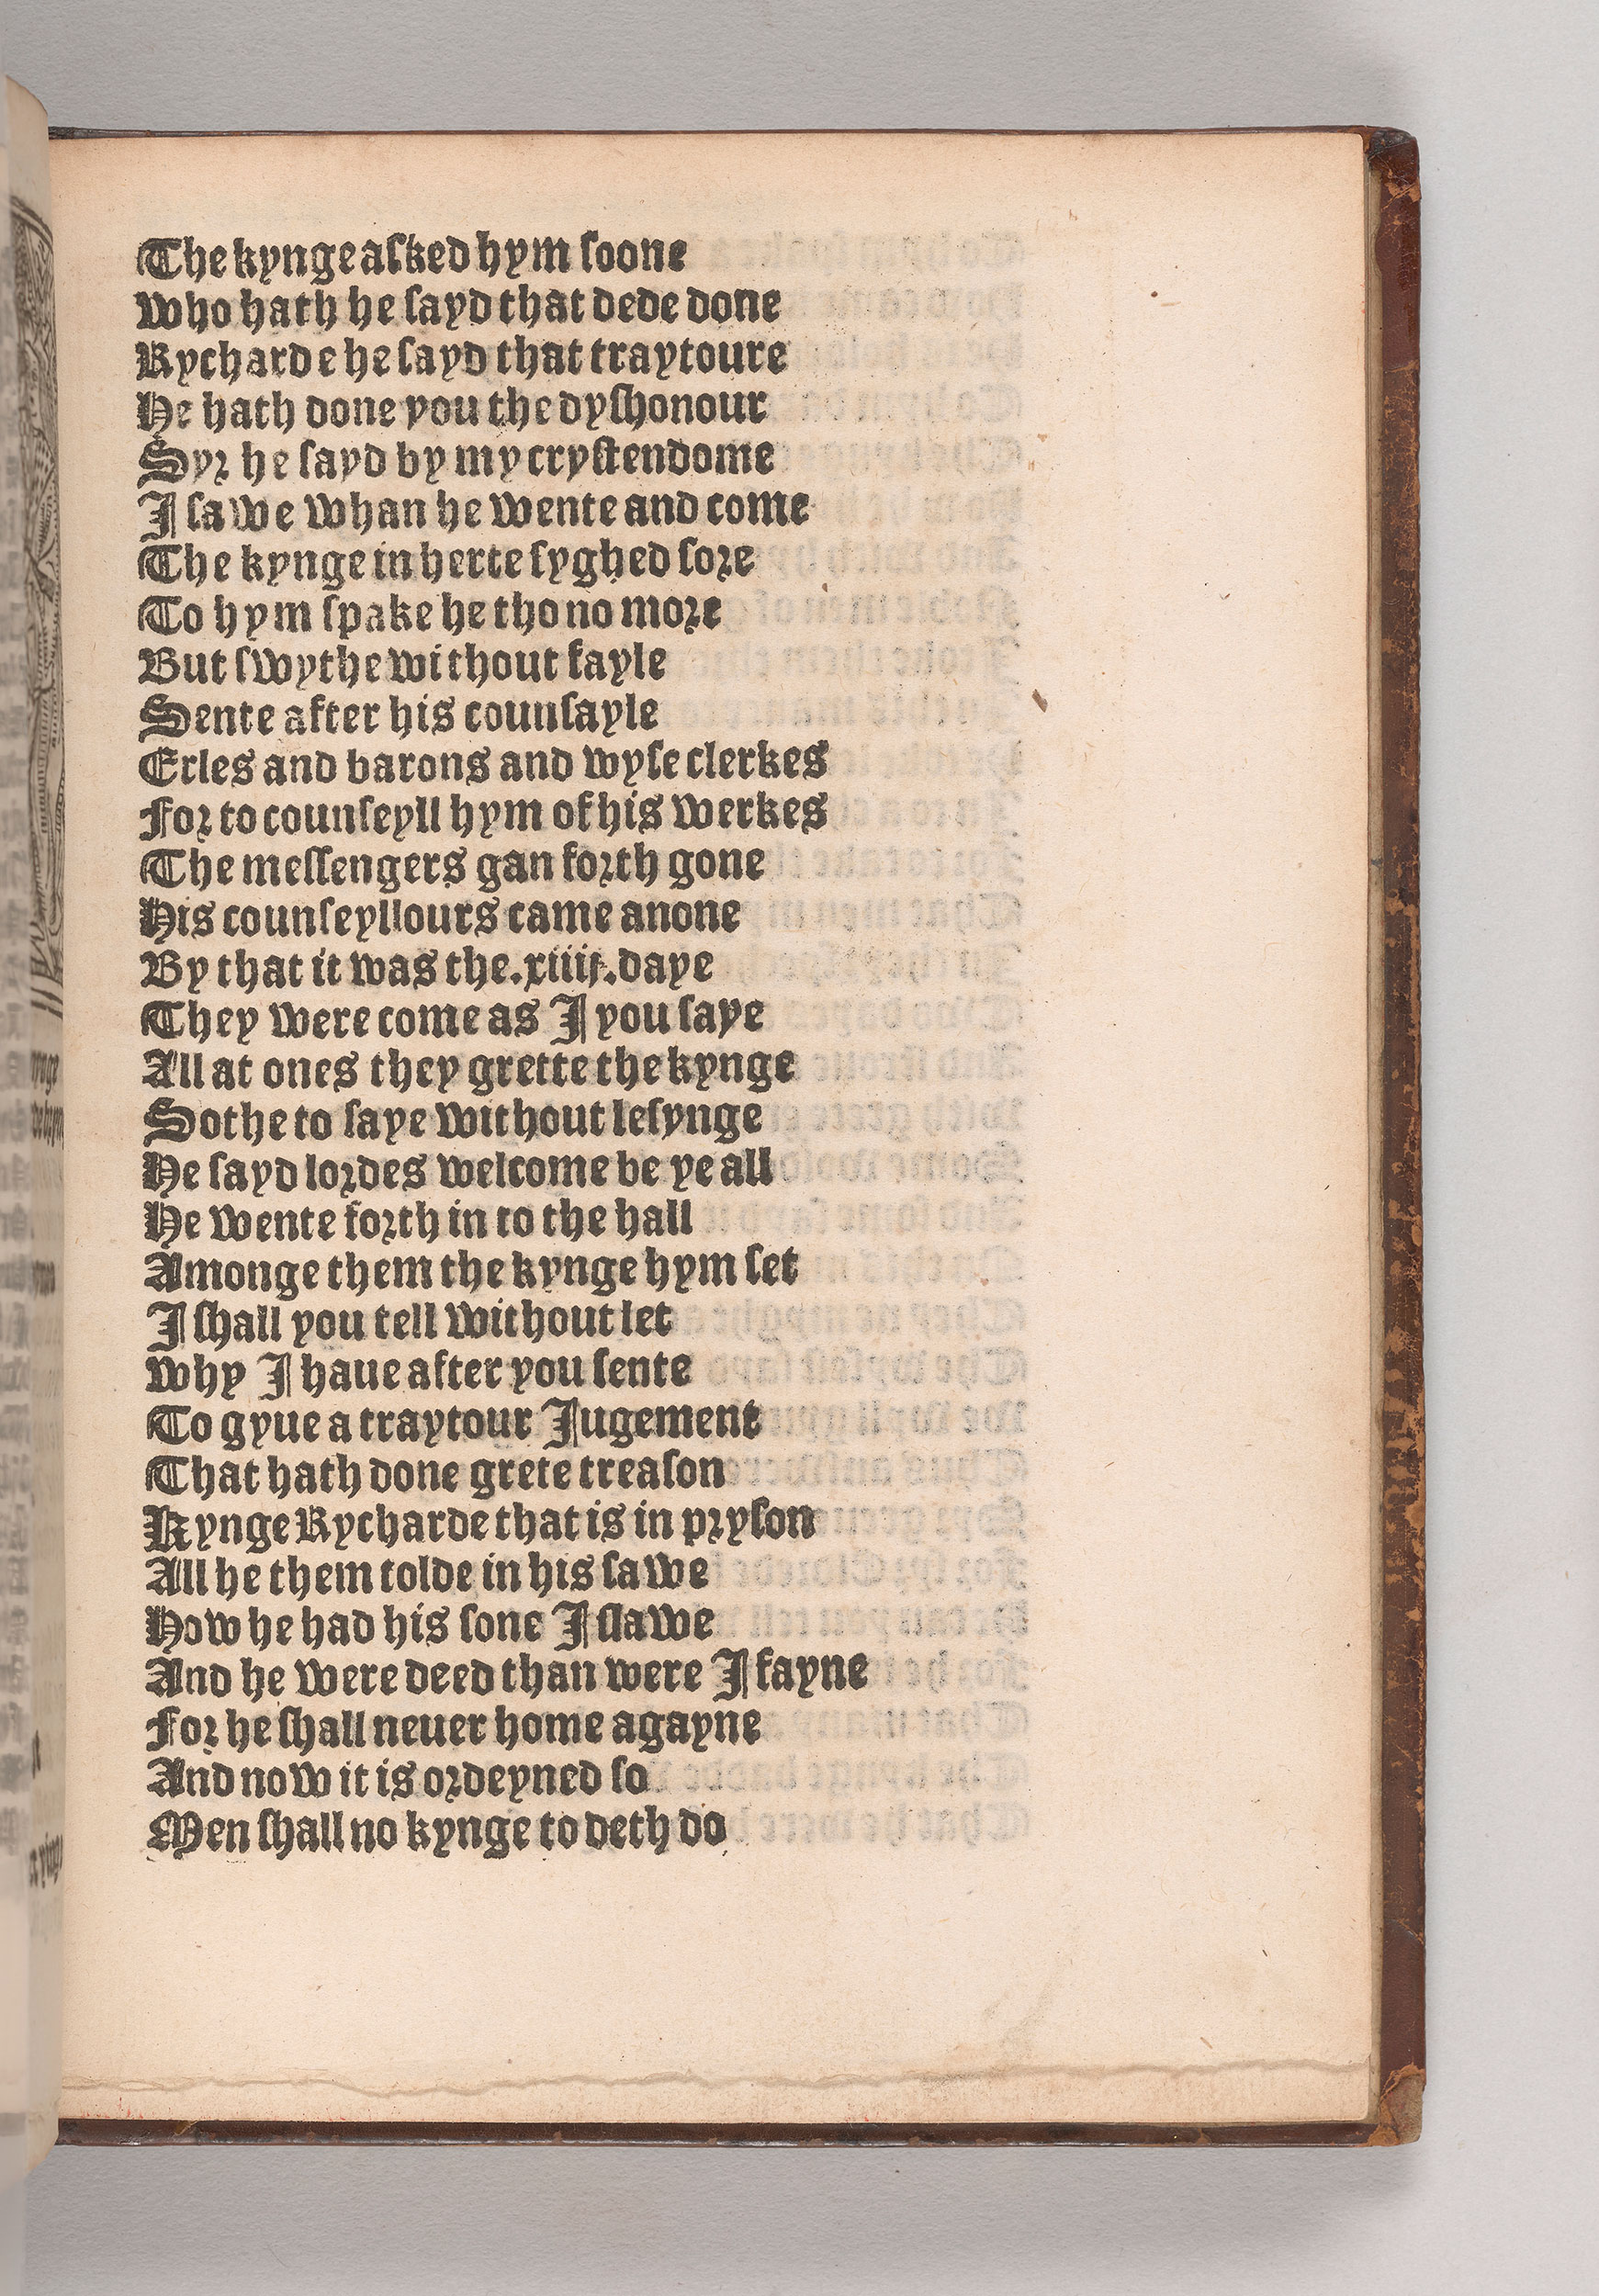 The kynge asked hym soone
Who hath he sayd that dede done
Rycharde he sayd that traytoure
He hath done you the dyshonour
Syr he sayd by my crystendome
I sawe whan he wente and come
The kynge in herte syghed sore
To hym spake he tho no more
But swythe without fayle
Sente after his counsayle
Erles and barons and wyse clerkes
For to counseyll hym of his werkes
The messengers gan forth gone
His counseyllours came anone
By that it was the .xiiij. daye
They were come as I you saye
All at ones they grette the kynge
Sothe to saye without lesynge
He sayd lordes welcome be ye all
He wente forth in to the hall
Amonge them the kynge hym set
I shall you tell without let
Why I haue after you sente
To gyue a traytour Jugement
That hath done grete treason
Kynge Rycharde that is in pryson
All he them tolde in his sawe
How he had his sone I slawe
And he were deed than were I fayne
For he shall neuer home agayne
And now it is ordeyned so
Men shall no kynge to deth do